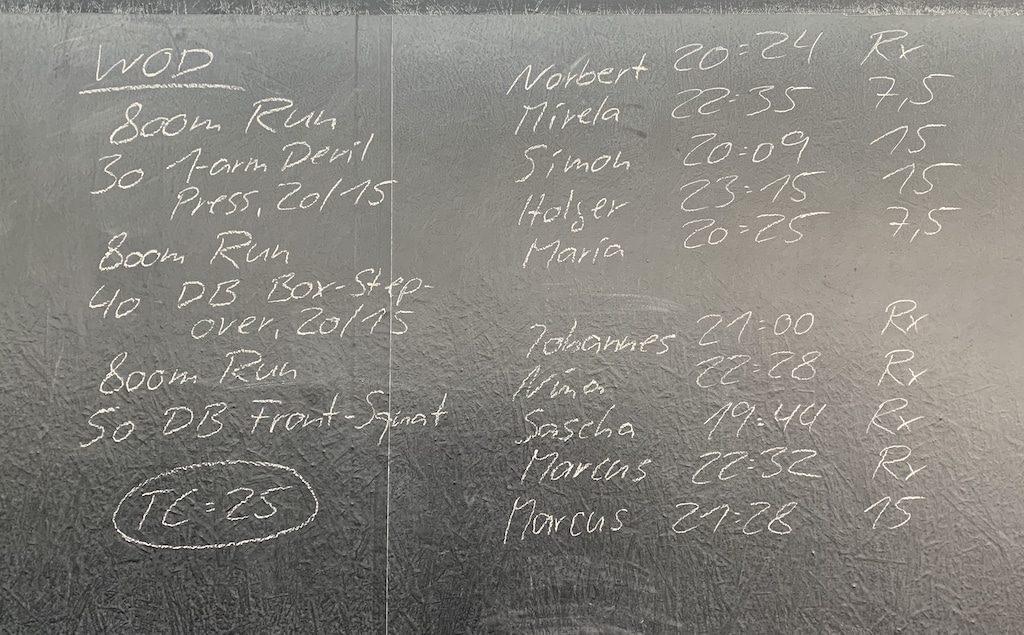 WOD
800m Run
30 1-arm Devil
Press, 20/15
800m Run
40 DB Box-Step-
over, 20/15
800m Run
50 DB Front-Squat
TC=25
Norbert 20:24 Rx
Mirela 22:35 7,5
Simon 20:09 15
Holger 23:15 15
Maria 20:25 7,5
Johannes 21:00 Rx
Nina 22:28 Rx
Sascha 19:44 Rx
Marcus 22:32 Rx
Marcus 21:28 15